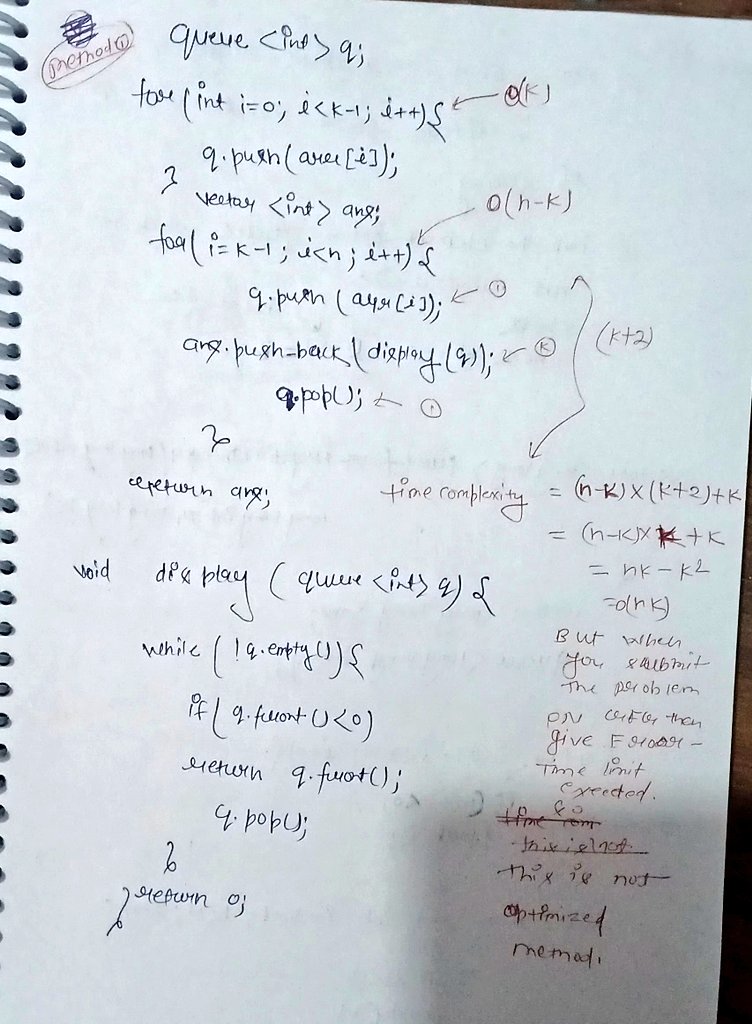 Method ①
queue <int> q;
for (int i=0; i<k-1; i++){ ← O(k)
q.push(arr[i]);
}
vector <int> ans;
O(n-k)
for( i=k-1; i<n; i++){
q.push (arr[i]); ← ①
ans.push-back(display(q)); ← Ⓚ
(k+2)
q.pop(); ← ①
}
return ans;
time complexity = (n-k)×(k+2)+k
= (n-k)×k+k
= nk-k²
=o(nk)
void display (queue<int> q) {
while (!q.empty()){
if( q.front()<0)
return q.front();
q.pop();
}
return 0;
}
But when
you submit
the problem
on GFG then
give Error-
Time limit
exected.
so
this is not
optimized
method.